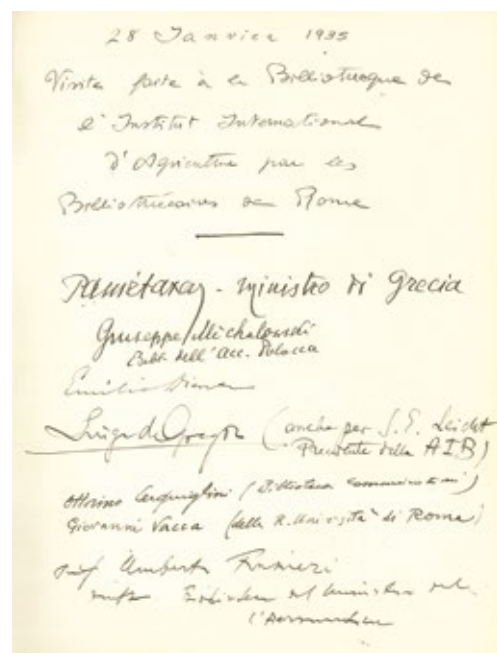 28 Janvier 1935
Visite faite à la Bibliothèque de
l'Institut International
d'Agriculture par les
Bibliothécaires de Rome
ministro di Grecia
Giuseppe Michalowski
Bibl. dell'Acc. Polacca
Emilio
Luigi de Gregori (anche per S. E. Leicht
Presidente della AIB)
Ottorino Cerquiglini (Biblioteca
Giovanni Vacca (della R. Università di Roma)
Prof Umberto
Ministero
l'Aeronautica